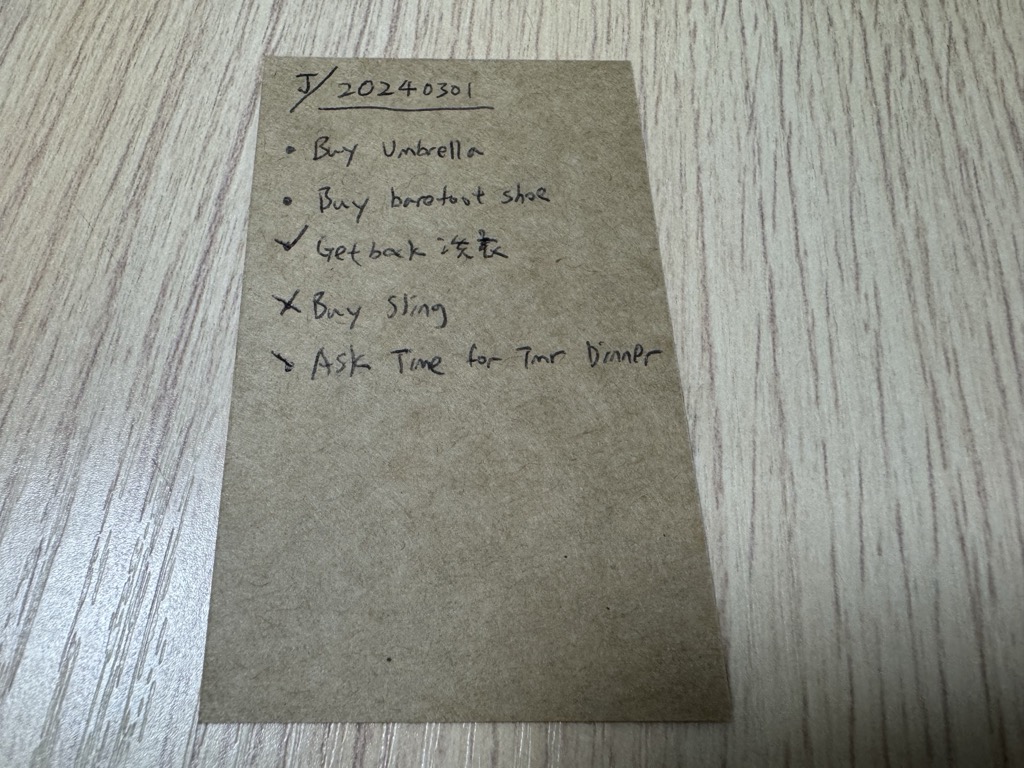 J/20240301
• Buy Umbrella
• Buy barefoot shoe
✓ Get back 洗衣
✗ Buy Sling
Ask Time for Tmr Dinner